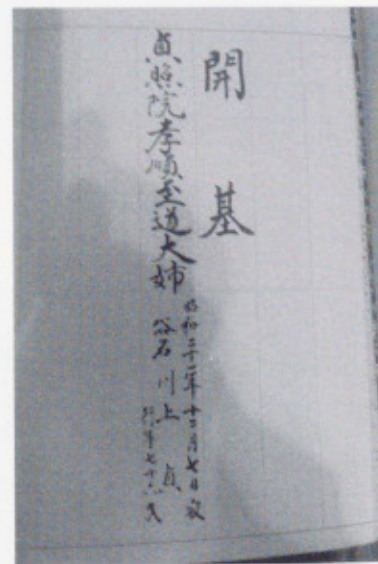 開基
貞照院孝順至道大姉
昭和二十一年十二月七日寂
俗名川上貞
行年七十六才